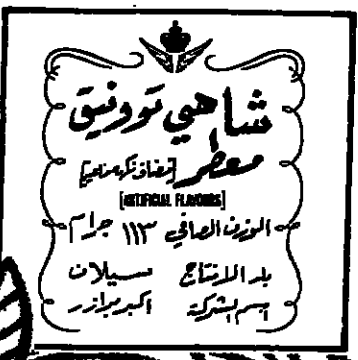 شاهي توفيق
معطر [مضاف نكهة صناعية]
[ARTIFICIAL FLAVOURS]
الوزن الصافي ١١٣ جرام
بلد الانتاج سيلات
اسم الشركة اكبر برازرز